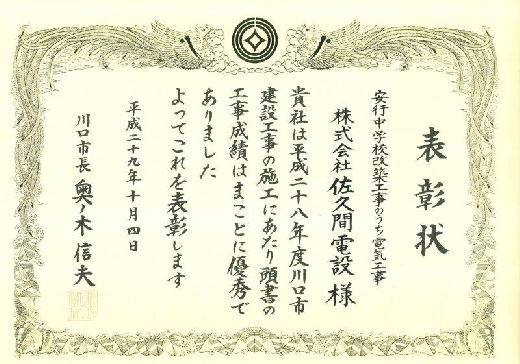 表彰状
安行中学校改築工事のうち電気工事
株式会社佐久間電設様
貴社は平成二十八年度川口市
建設工事の施工にあたり頭書の
工事成績はまことに優秀で
ありました
よってこれを表彰します
平成二十九年十月四日
川口市長 奥ノ木信夫